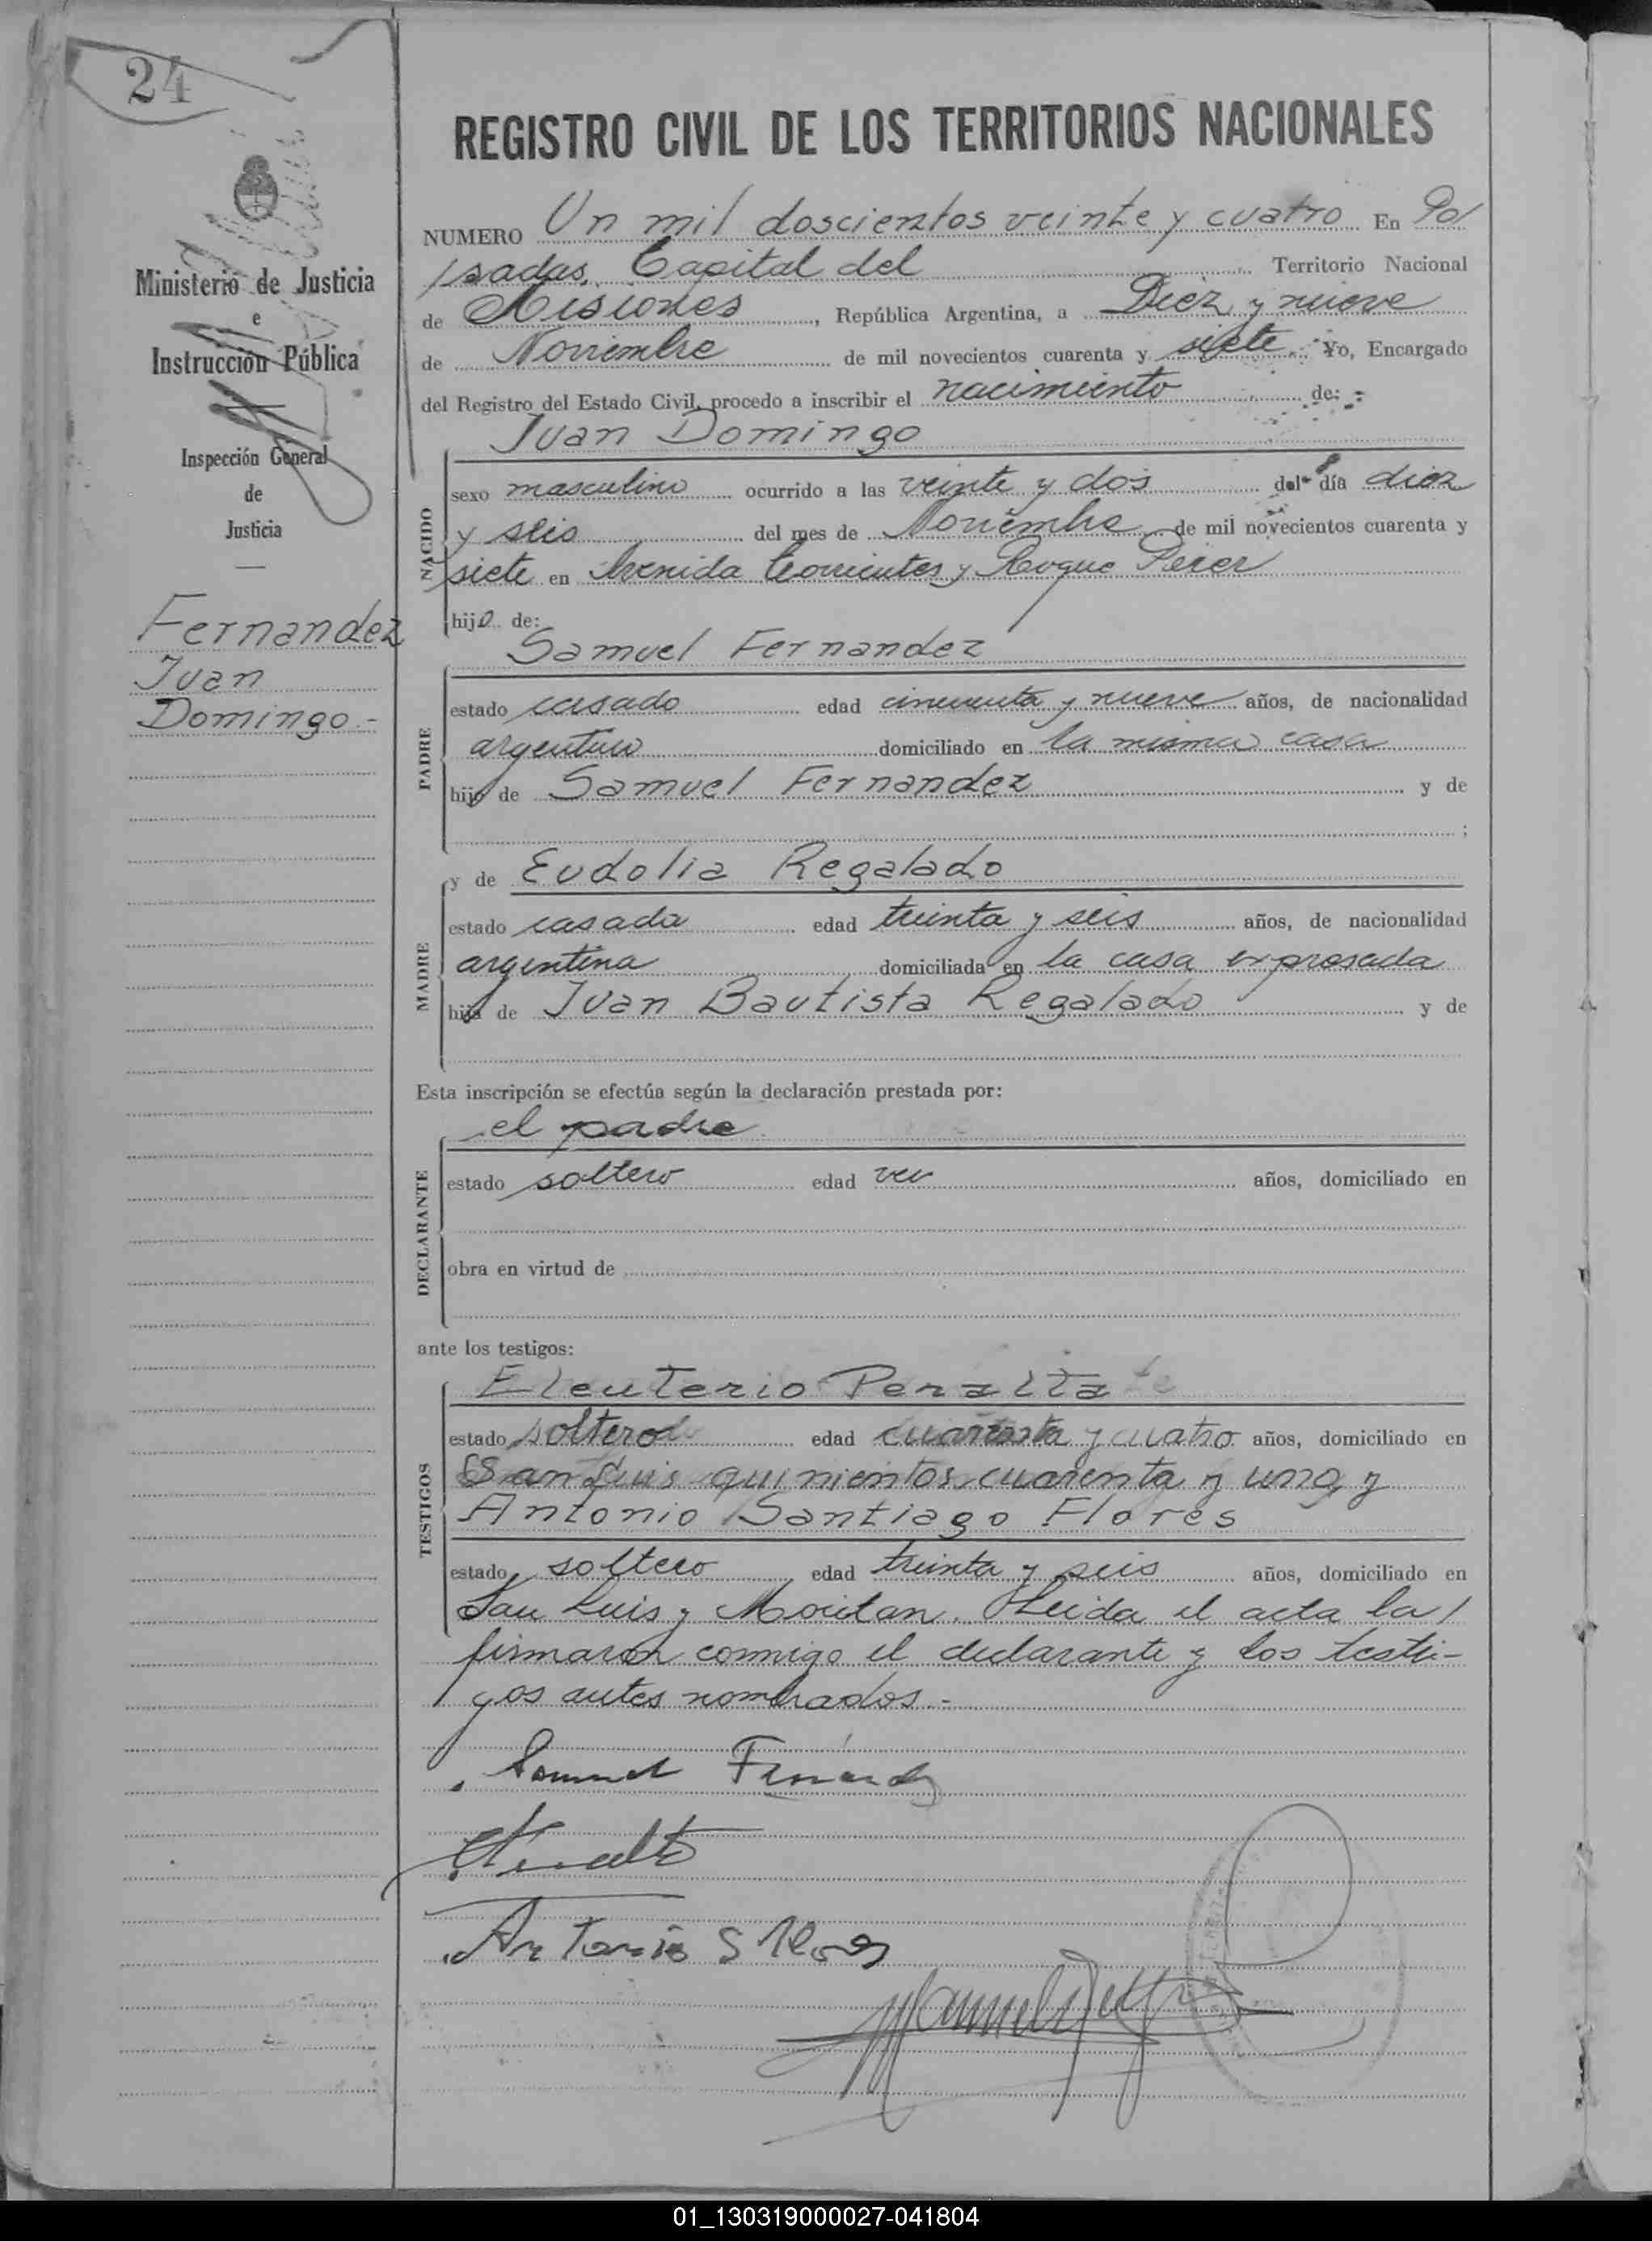 24
REGISTRO CIVIL DE LOS TERRITORIOS NACIONALES
NUMERO Un mil doscientos veinte y cuatro En Po/
/sadas, Capital del Territorio Nacional
de Misiones, República Argentina, a Diez y nueve
de Noviembre de mil novecientos cuarenta y siete. Yo, Encargado
del Registro del Estado Civil, procedo a inscribir el nacimiento de:
Juan Domingo
Ministerio de Justicia
e
Instrucción Pública
Inspección General
de
Justicia
Fernandez
Juan
Domingo.-
NACIDO
sexo masculino ocurrido a las veinte y dos del día diez
y seis del mes de Noviembre de mil novecientos cuarenta y
siete en Avenida Corrientes y Roque Perez
hijo de:
Samuel Fernandez
PADRE
estado casado edad cincuenta y nueve años, de nacionalidad
argentino domiciliado en la misma casa
hijo de Samuel Fernandez y de
;
y de Eudolia Regalado
MADRE
estado casada edad treinta y seis años, de nacionalidad
argentina domiciliada en la casa expresada
hija de Juan Bautista Regalado y de
Esta inscripción se efectúa según la declaración prestada por:
el padre
DECLARANTE
estado soltero edad años, domiciliado en
obra en virtud de
ante los testigos:
Eleuterio Peralta
TESTIGOS
estado soltero edad cuarenta y cuatro años, domiciliado en
San Luis quinientos cuarenta y uno, y
Antonio Santiago Flores
estado soltero edad treinta y seis años, domiciliado en
San Luis y Moritan. Leida el acta la/
firmaron conmigo el declarante y los testi-
gos antes nombrados.-
Samuel Fernandez
Antonio S Flores
01_130319000027-041804